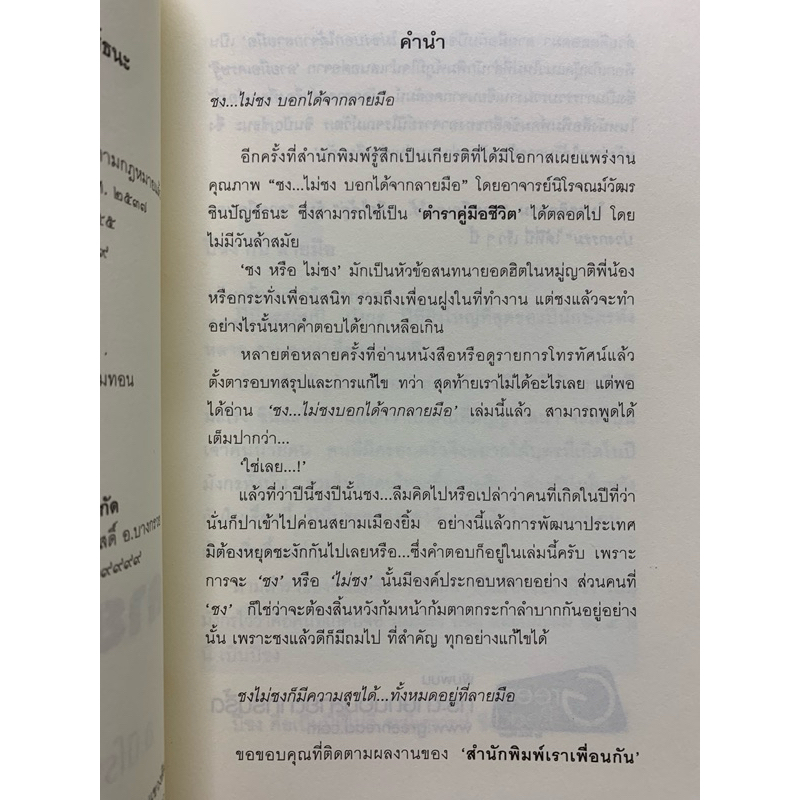 คำนำ
ชง...ไม่ชง บอกได้จากลายมือ
อีกครั้งที่สำนักพิมพ์รู้สึกเป็นเกียรติที่ได้มีโอกาสเผยแพร่งาน
คุณภาพ “ชง...ไม่ชง บอกได้จากลายมือ” โดยอาจารย์นิโรจณม์วัฒร
ชินปัญช์ธนะ ซึ่งสามารถใช้เป็น ‘ตำราคู่มือชีวิต’ ได้ตลอดไป โดย
ไม่มีวันล้าสมัย
‘ชง หรือ ไม่ชง’ มักเป็นหัวข้อสนทนายอดฮิตในหมู่ญาติพี่น้อง
หรือกระทั่งเพื่อนสนิท รวมถึงเพื่อนฝูงในที่ทำงาน แต่ชงแล้วจะทำ
อย่างไรนั้นหาคำตอบได้ยากเหลือเกิน
หลายต่อหลายครั้งที่อ่านหนังสือหรือดูรายการโทรทัศน์แล้ว
ตั้งตารอบทสรุปและการแก้ไข ทว่า สุดท้ายเราไม่ได้อะไรเลย แต่พอ
ได้อ่าน ‘ชง...ไม่ชงบอกได้จากลายมือ’ เล่มนี้แล้ว สามารถพูดได้
เต็มปากว่า...
‘ใช่เลย...!’
แล้วที่ว่าปีนี้ชงปีนั้นชง...ลืมคิดไปหรือเปล่าว่าคนที่เกิดในปีที่ว่า
นั่นก็ปาเข้าไปค่อนสยามเมืองยิ้ม อย่างนี้แล้วการพัฒนาประเทศ
มิต้องหยุดชะงักกันไปเลยหรือ...ซึ่งคำตอบก็อยู่ในเล่มนี้ครับ เพราะ
การจะ ‘ชง’ หรือ ‘ไม่ชง’ นั้นมีองค์ประกอบหลายอย่าง ส่วนคนที่
‘ชง’ ก็ใช่ว่าจะต้องสิ้นหวังก้มหน้าก้มตาตกระกำลำบากกันอยู่อย่าง
นั้น เพราะชงแล้วดีก็มีถมไป ที่สำคัญ ทุกอย่างแก้ไขได้
ชงไม่ชงก็มีความสุขได้...ทั้งหมดอยู่ที่ลายมือ
ขอขอบคุณที่ติดตามผลงานของ ‘สำนักพิมพ์เราเพื่อนกัน’